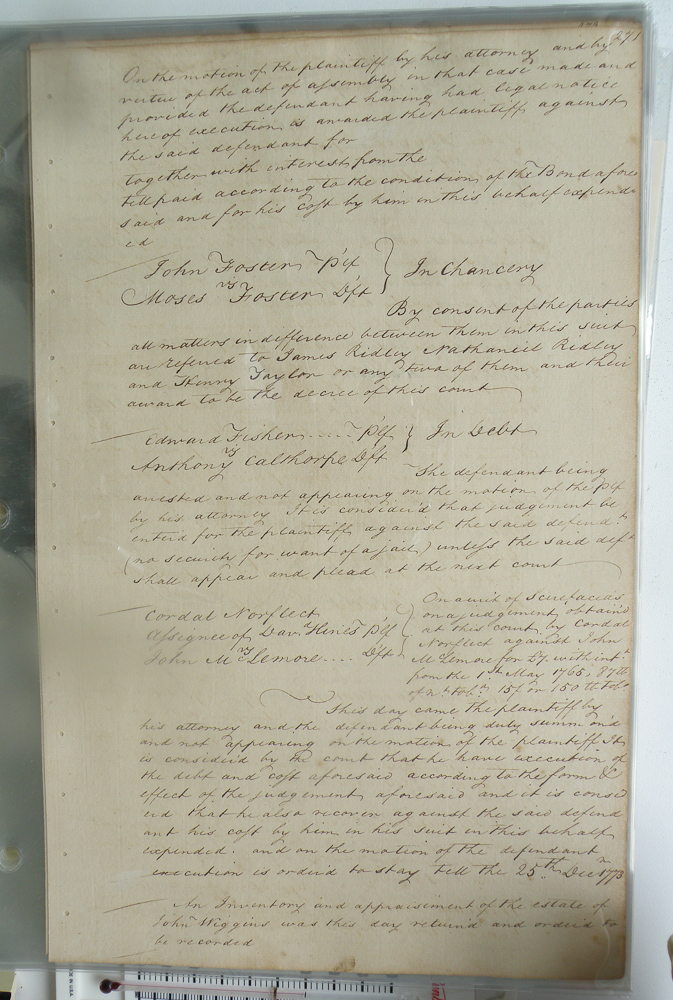 271
On the motion of the plaintiff by his attorney and by
virtue of the act of assembly in that case made and
provided the defendant having had legal notice
hereof execution is awarded the plaintiff against
the said defendant for
together with interest from the
till paid according to the condition of the Bond afore
said and for his cost by him in this behalf expend
ed
John Foster Plf } In Chancery
vs
Moses Foster Dft
By consent of the parties
all matters in difference between them in this suit
are refered to James Ridley Nathaniel Ridley
and Henry Taylor or any two of them and their
award to be the decree of this court
Edward Fisher .... Plf } In Debt
vs
Anthony Calthorpe Dft
The defendant being
arrested and not appearing on the motion of the Plf
by his attorney It is consider'd that judgement be
enter'd for the plaintiff against the said defendt
(no security for want of a jail) unless the said deft
shall appear and plead at the next court
Cordal Norfleet
Assignee of Davd Hines Plf
vs
John McLemore .... Dft
On a writ of scirefacias
on a judgement obtain'd
at this court by Cordal
Norfleet against John
McLemore for £7. with intt
from the 1st May 1765, 87 lb
of nt tobo 15/ or 150 lb tobo
This day came the plaintiff by
his attorney and the defendant being duly summon'd
and not appearing on the motion of the plaintiff It
is consider'd by the court that he have execution of
the debt and cost aforesaid according to the form &
effect of the judgement aforesaid and it is consid
er'd that he also recover against the said defend
ant his cost by him in his suit in this behalf
expended. and on the motion of the defendant
execution is order'd to stay till the 25th Decr 1773
An Inventory and appraisement of the estate of
John Wiggins was this day return'd and order'd to
be recorded